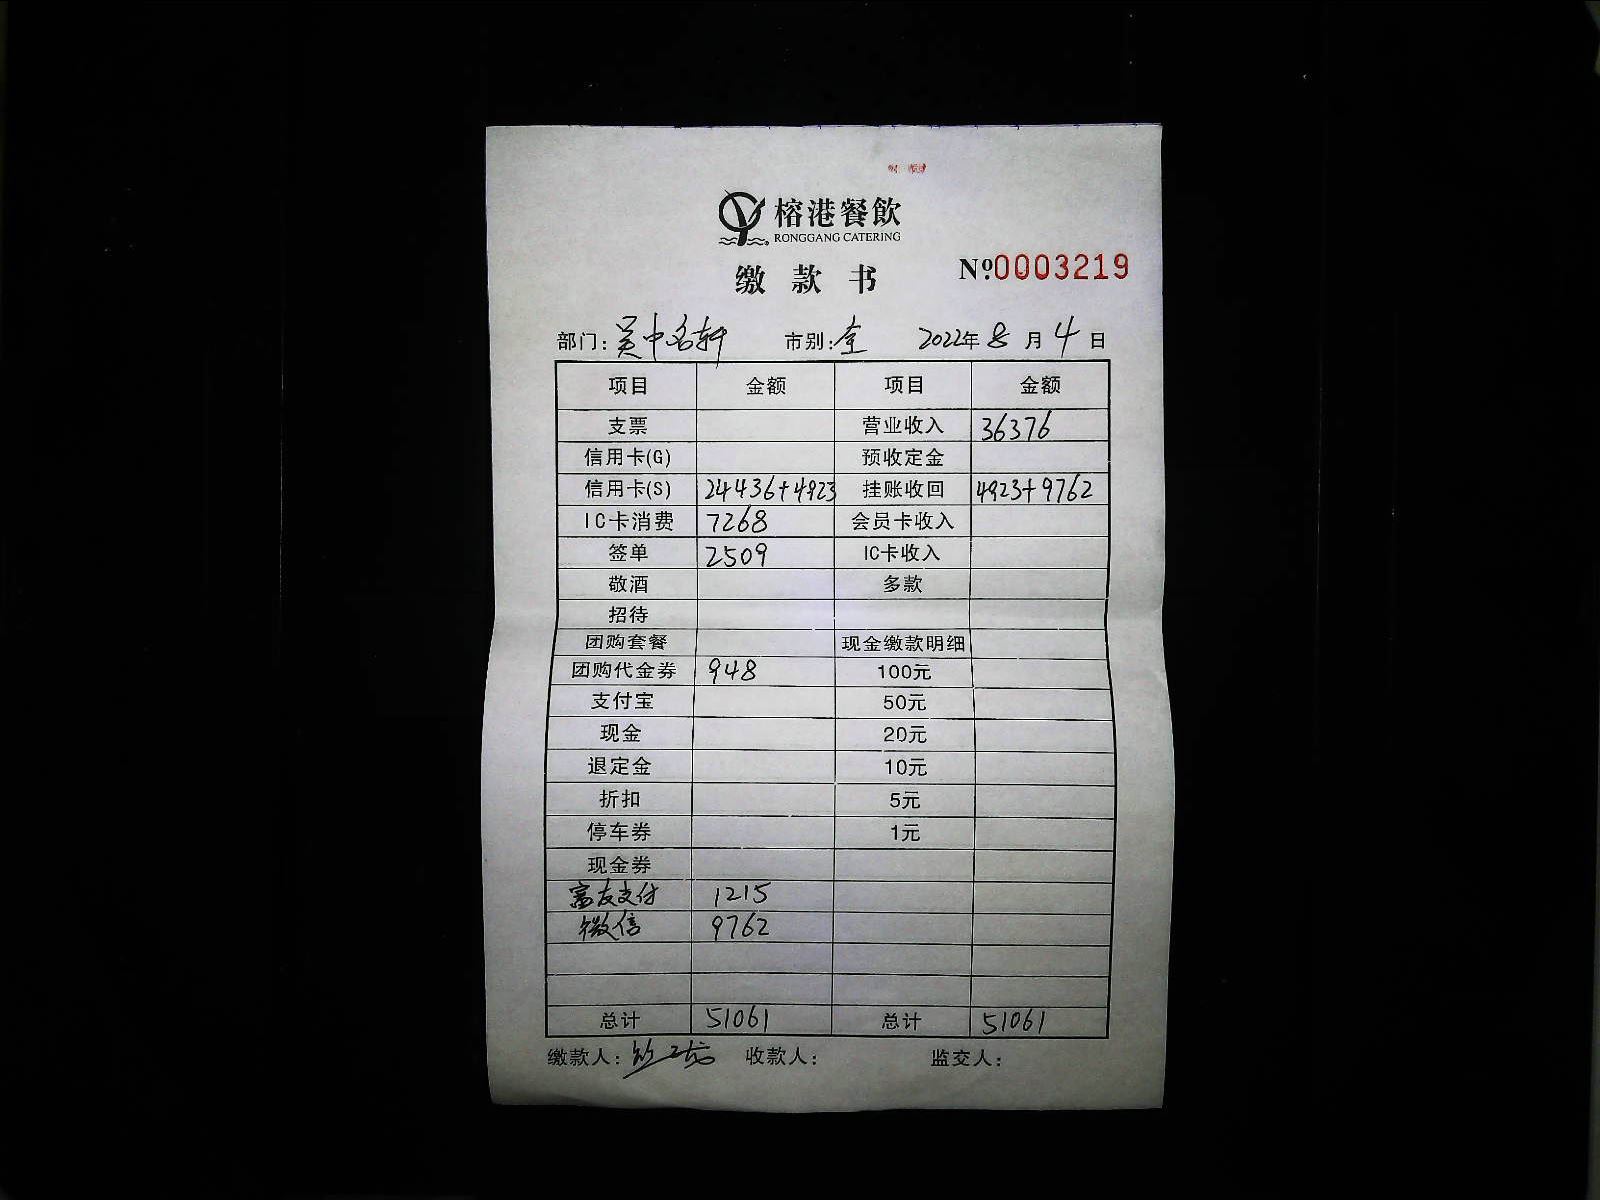 榕港餐飲
RONGGANG CATERING
缴款书 №0003219
部门：吴中名轩 市别：全 2022年8月4日
项目 金额 项目 金额
支票 营业收入 36376
信用卡(G) 预收定金
信用卡(S) 24436+4923 挂账收回 4923+9762
IC卡消费 7268 会员卡收入
签单 2509 IC卡收入
敬酒 多款
招待
团购套餐 现金缴款明细
团购代金券 948 100元
支付宝 50元
现金 20元
退定金 10元
折扣 5元
停车券 1元
现金券
富友支付 1215
微信 9762
总计 51061 总计 51061
缴款人： 收款人： 监交人：